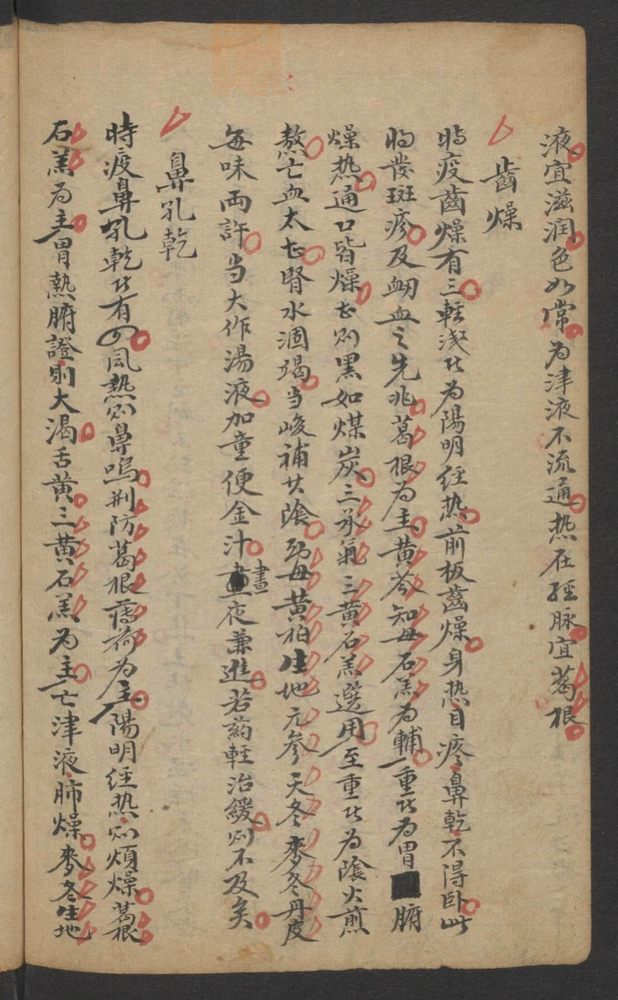 液宜滋润色如常为津液不流通热在经脉宜葛根
齒燥
時疫齒燥有三輕浅者为陽明经热前板齒燥身热目疼鼻乾不得卧此
将發斑疹及衄血之先兆葛根为主黄芩知母石羔为輔重者为胃腑
燥热通口皆燥甚则黑如煤炭三承氣三黄石羔選用至重者为陰火煎
熬亡血太甚腎水涸竭当峻補其陰知母黄柏生地元参天冬麥冬丹皮
每味両許当大作湯液加童便金汁晝夜兼進若葯輕治緩则不及矣
鼻孔乾
時疫鼻孔乾者有四風热则鼻鳴荆防葛根薄荷为主陽明经热则煩燥葛根
石羔为主胃熱腑證則大渴舌黄三黄石羔为主亡津液肺燥麥冬生地